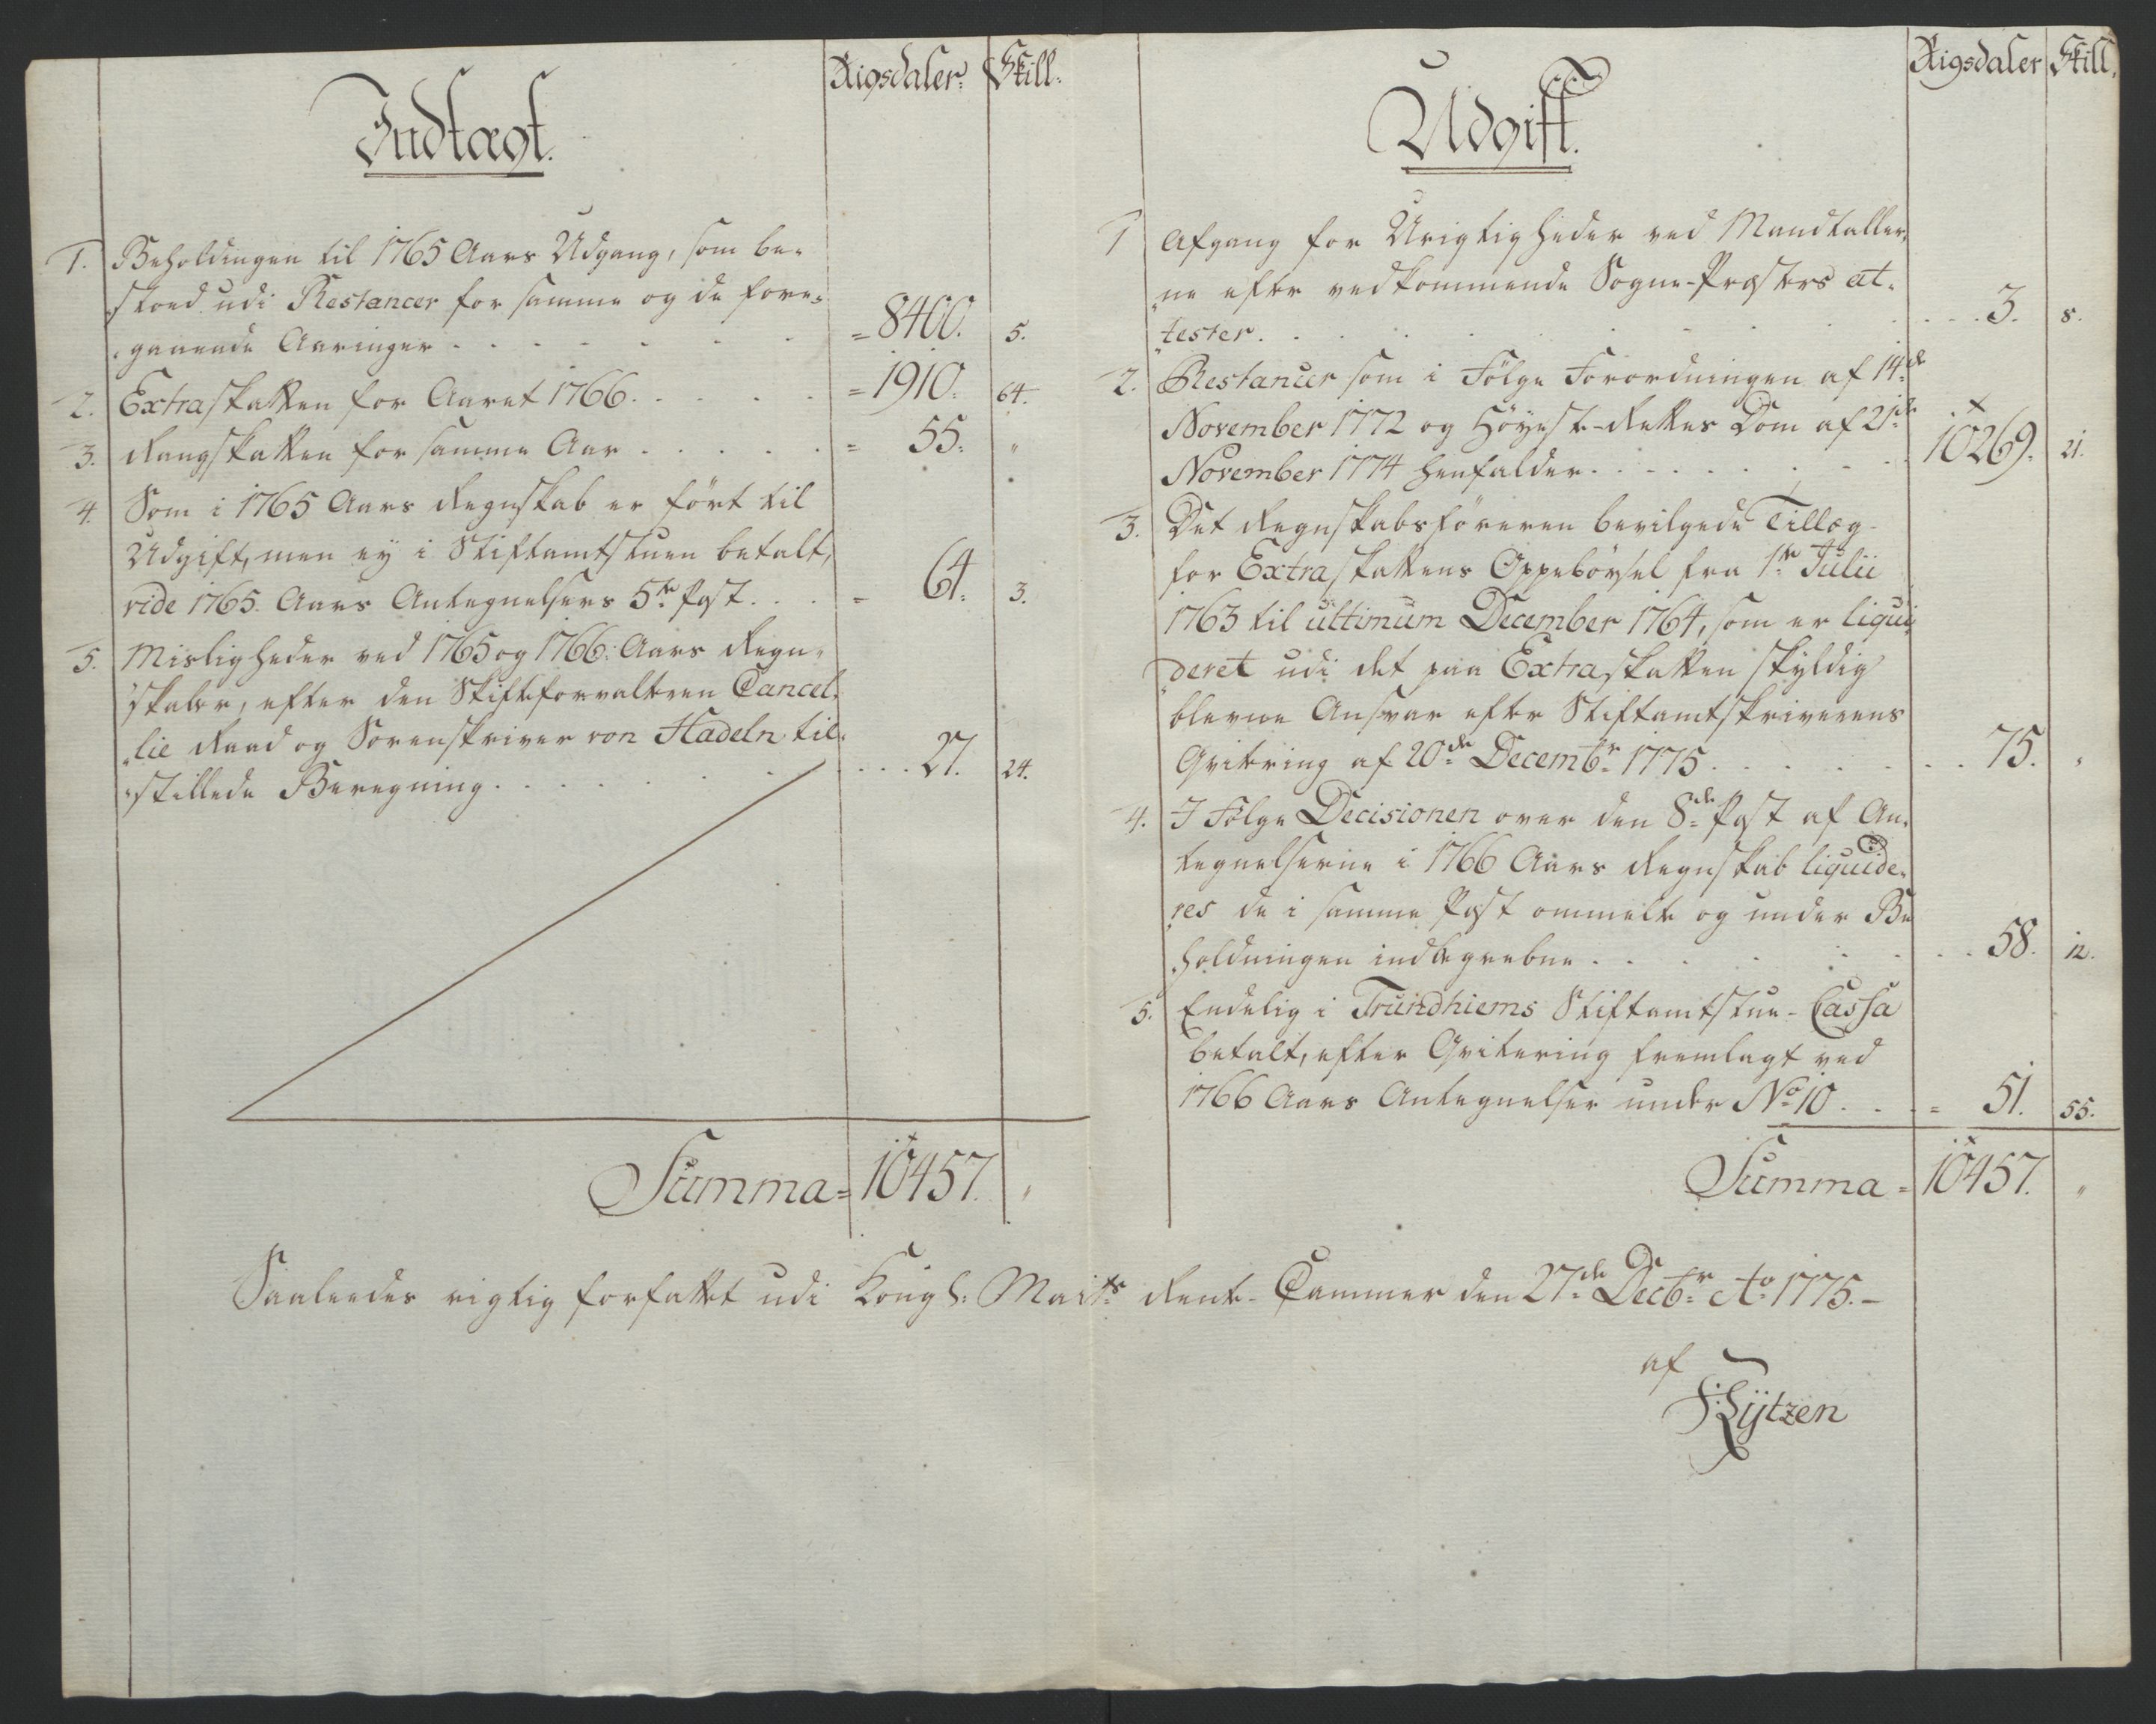 Rigsdaler. Skill.
Indtægt.
1. Beholdingen til 1765 Aars Udgang, som be-
stoed udi Restancer for samme og de fore-
gaaende Aaringer . . . . . . = 8400. 5.
2. Extraskatten for Aaret 1766. . . . . = 1910. 64.
3. Rangskatten for samme Aar . . . . . = 55. "
4. Som i 1765 Aars Regnskab er ført til
Udgift, men ey i Stiftamtstuen betalt,
vide 1765. Aars Antegnelsers 5te Post. . . = 64. 3.
5. Misligheder ved 1765 og 1766. Aars Regn-
skaber, efter den Stiftsforvalteren Cancel-
lie Raad og Sorenskriver von Hadeln til-
stillede Beregning. . . . . . . . . 27. 24.
Summa = 10457. "
Rigsdaler Skill.
Udgift.
1 Afgang for Urigtigheder ved Mandtaller-
ne efter vedkommende Sogne-Præsters At-
tester. . . . . . . . . . . 3. 8.
2. Restancer som i Følge Forordningen af 14de
November 1772 og Høyeste-Rettes Dom af 21de
November 1774 henfalder. . . . . . . . 10269. 21.
3. Det Regnskabsføreren bevilgede Tillæg
for Extraskattens Oppebørsel fra 1te Julii
1763 til ultimum December 1764, som er liqui-
deret udi det paa Extraskatten skyldig
blevne Ansvar efter Stiftamtskriverens
Qvitering af 20de Decembr 1775. . . . . . . . 75. "
4. I Følge Decisionen over den 8de Post af An-
tegnelserne i 1766 Aars Regnskab liquide-
res de i samme Post ommelte og under Be
holdningen indbegrebne . . . . . . . . 58. 12.
5. Endelig i Trundhiems Stiftamtstue-Cassa
betalt, efter Qvitering fremlagt ved
1766 Aars Antegnelser under No 10. . . . = 51. 55.
Summa = 10457. "
Saaleedes rigtig forfattet udi Kongl: Maits Rente-Cammer den 27de Decbr Ao 1775.-
af
Lytzen